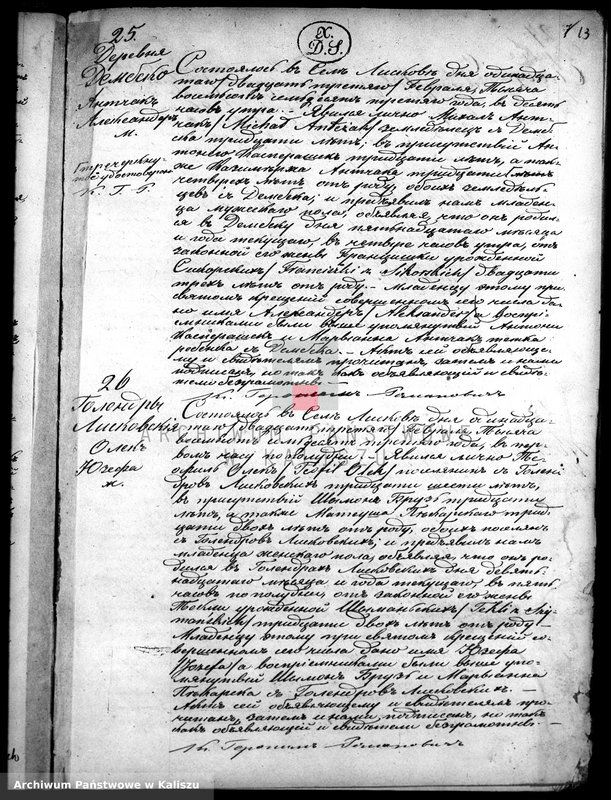 X.
D. S.
7 13
25.
Деревня
Дембско
Антчакъ
Александеръ
м.
Состоялось въ Селѣ Лисковѣ дня одинадца
таго/двадцать третьяго/Февраля, тысяча
восемьсотъ семьдесятъ третьяго года, въ десять
часовъ утра. Явился лично Михалъ Ант-
чакъ/Michał Antczak/земледѣлецъ съ Демб-
ска тридцати лѣтъ, въ присутствіи Ан-
тонего Каспершакъ тридцати лѣтъ, а так-
же Казимѣржа Антчака тридцати
четырехъ лѣтъ отъ роду, обоихъ земледѣль-
цевъ съ Дембска; и предъявилъ намъ младен-
ца мужескаго пола, объявляя, что онъ родил-
ся въ Дембску дня пятнадцатаго мѣсяца
и года текущаго, въ четыре часовъ утра, отъ
законной его жены Францишки урожденной
Сикорскихъ/Franciszki z Sikorskich/двадцати
трехъ лѣтъ отъ роду. Младенцу этому при
святомъ крещеніи совершенномъ его числа да-
но имя Александеръ/Aleksander/а воспрі-
емниками были выше упомянутый Антони
Каспершакъ и Марыанна Антчакъ
съ Дембска. Актъ сей объявляюще-
му и свидѣтелямъ прочитанъ, затемъ и нами
подписанъ, но такъ какъ объявляющій и свидѣ-
тели безграмотны.
26
Голендры
Лисковскія
Олекъ
Юзефа
ж.
Состоялось въ Селѣ Лисковѣ дня одинадца-
таго/двадцать третьяго/Февраля, тысяча
восемьсотъ семьдесятъ третьяго года, въ пер-
вомъ часу по полудни. Явился лично Те-
офиль Олекъ/Teofil Olek/поселянинъ съ Голен-
дровъ Лисковскихъ тридцати шести лѣтъ,
въ присутствіи Шымона Брузь тридцати
лѣтъ, а также Матеуша Пѣкарскаго трид-
цати двохъ лѣтъ отъ роду, обоихъ поселянъ
съ Голендровъ Лисковскихъ; и предъявилъ намъ
младенца женскаго пола, объявляя, что онъ ро-
дился въ Голендрахъ Лисковскихъ дня девять-
надцатаго мѣсяца и года текущаго, въ пять
часовъ по полудни, отъ законной его жены
Теклии урожденной
тридцати двохъ лѣтъ отъ роду
Младенцу этому при святомъ крещеніи со-
вершенномъ его числа дано имя Юзефа
/Józefa/а воспріемниками были выше упо-
мянутый Шымонъ Брузь и Марыанна
Пѣкарска съ Голендровъ Лисковскихъ.
Актъ сей объявляющему и свидѣтелямъ про-
читанъ, затемъ и нами подписанъ, но такъ
какъ объявляющій и свидѣтели безграмотны.
Archiwum Państwowe w Kaliszu